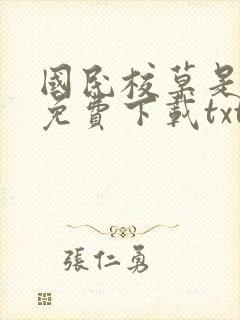 國民校草是
免費下載txt
張仁勇